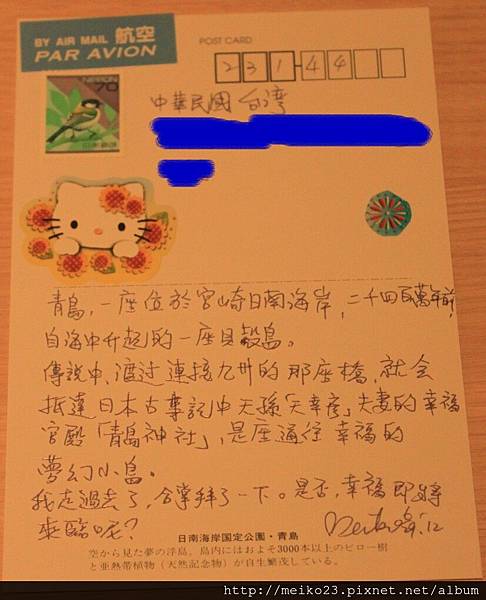 BY AIR MAIL 航空
PAR AVION
POST CARD
231-44
70
日本郵便
中華民國 台灣
青島，一座位於宮崎日南海岸，二千四百萬年前，
自海中升起的一座貝殼島。
傳說中，渡过連接九州的那座橋，就会
抵達日本古事記中天孫「天幸彦」夫妻的幸福
宮殿「青島神社」，是座通往幸福的
夢幻小島。
我走過去了，合掌拜了一下。是否，幸福即將
來臨呢？
日南海岸国定公園・青島
空から見た夢の浮島。島内にはおよそ3000本以上のビロー樹
と亜熱帯植物（天然記念物）が自生繁茂している。
http://meiko23.pixnet.net/album